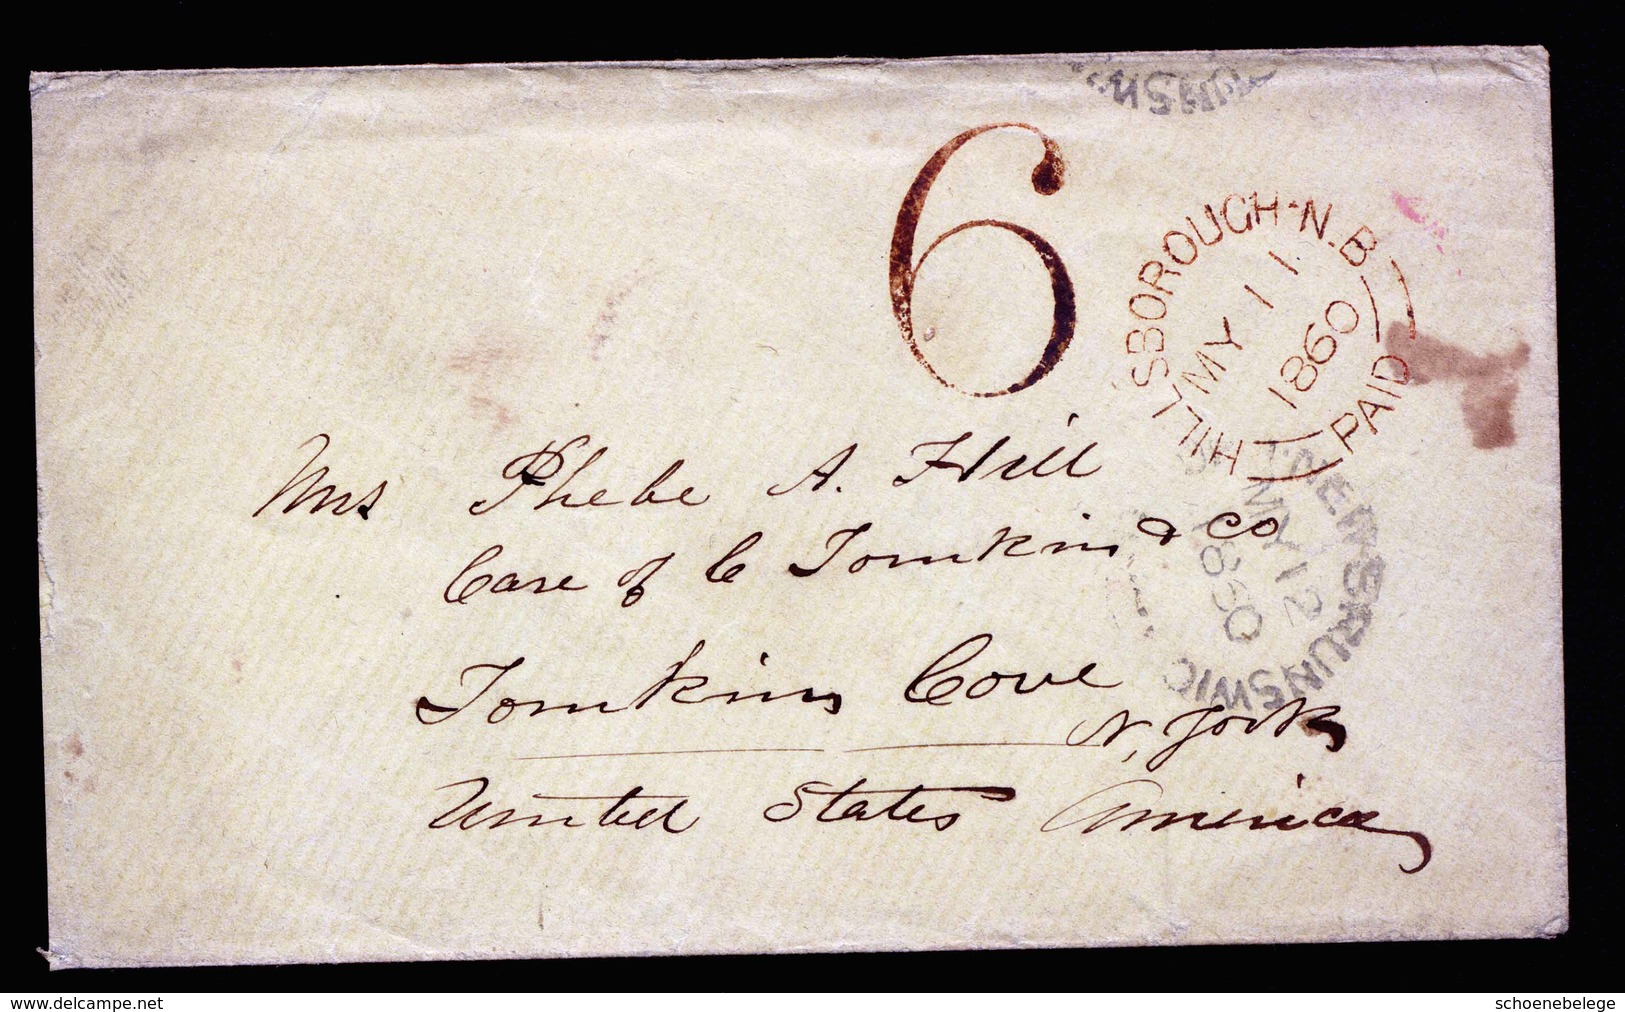 UNSW
6
HILLSBOROUGH·N.B.
MY 11
1860
PAID
Mrs Phebe A. Hill
Care of C Tomkins & Co
Tomkins Cove
N, York
United States America
NEW-BRUNSWIC
MY 12
1860
www.delcampe.net
schoenebelege